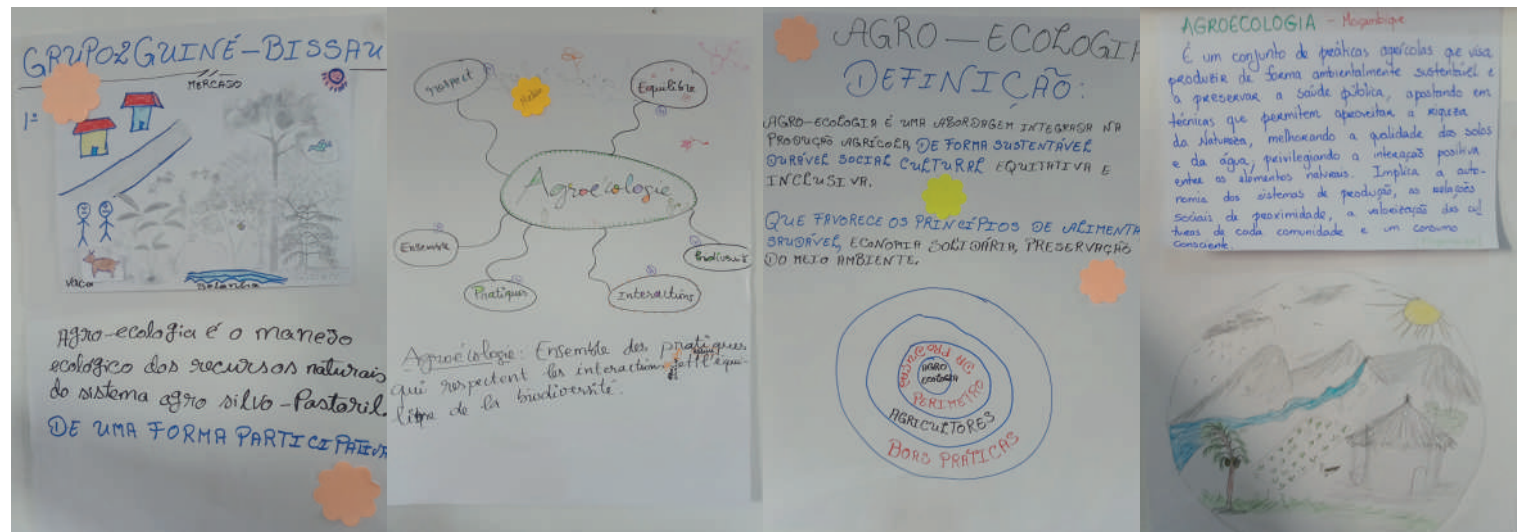 GRUPO2GUINÉ-BISSAU
MERCADO
1º
VACA
Agro-ecologia é o manejo
ecológico dos recursos naturais
do sistema agro silvo-Pastoril
DE UMA FORMA PARTICIPATIVA
respect
Equilibre
Agroecologie
Ensemble
Biodiversité
Pratiques
Interactions
Agroécologie: Ensemble des pratiques
qui respectent les interactions et l'équi-
libre de la biodiversité.
AGRO-ECOLOGIA
DEFINIÇÃO:
AGRO-ECOLOGIA É UMA ABORDAGEM INTEGRADA NA
PRODUÇÃO AGRÍCOLA, DE FORMA SUSTENTÁVEL
DURÁVEL SOCIAL CULTURAL EQUITATIVA E
INCLUSIVA.
QUE FAVORECE OS PRINCÍPIOS DE ALIMENTA
SAUDÁVEL, ECONOMIA SOLIDÁRIA, PRESERVAÇÃO
DO MEIO AMBIENTE.
AGRO
ECOLOGIA
PERIMETRO DA PRODUÇÃO
AGRICULTORES
BOAS PRÁTICAS
AGROECOLOGIA - Moçambique
É um conjunto de práticas agrícolas que visa
produzir de forma ambientalmente sustentável e
a preservar a saúde pública, apostando em
técnicas que permitem aproveitar a riqueza
da Natureza, melhorando a qualidade dos solos
e da água, privilegiando a interacção positiva
entre os elementos naturais. Implica a auto-
nomia dos sistemas de produção, as relações
sociais de proximidade, a valorização das cul
turas de cada comunidade e um consumo
consciente.